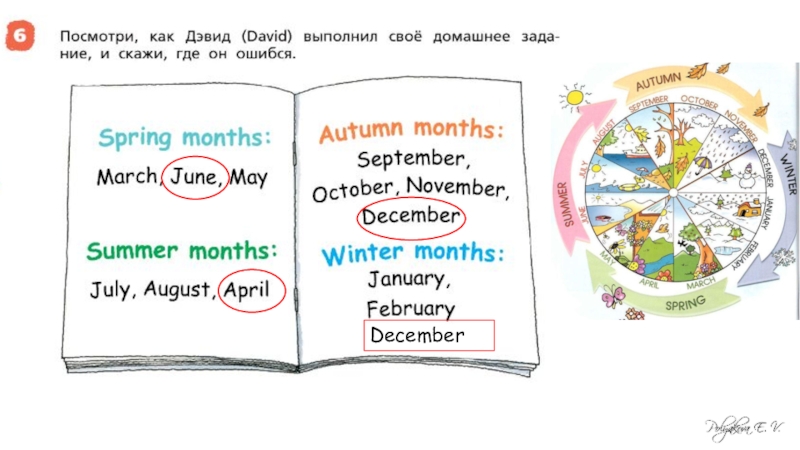 6
Посмотри, как Дэвид (David) выполнил своё домашнее зада-
ние, и скажи, где он ошибся.
Spring months:
March, June, May
Summer months:
July, August, April
Autumn months:
September,
October, November,
December
Winter months:
January,
February
December
AUTUMN
SEPTEMBER
OCTOBER
NOVEMBER
WINTER
DECEMBER
JANUARY
FEBRUARY
SPRING
MARCH
APRIL
MAY
SUMMER
JUNE
JULY
AUGUST
Polyakova E. V.